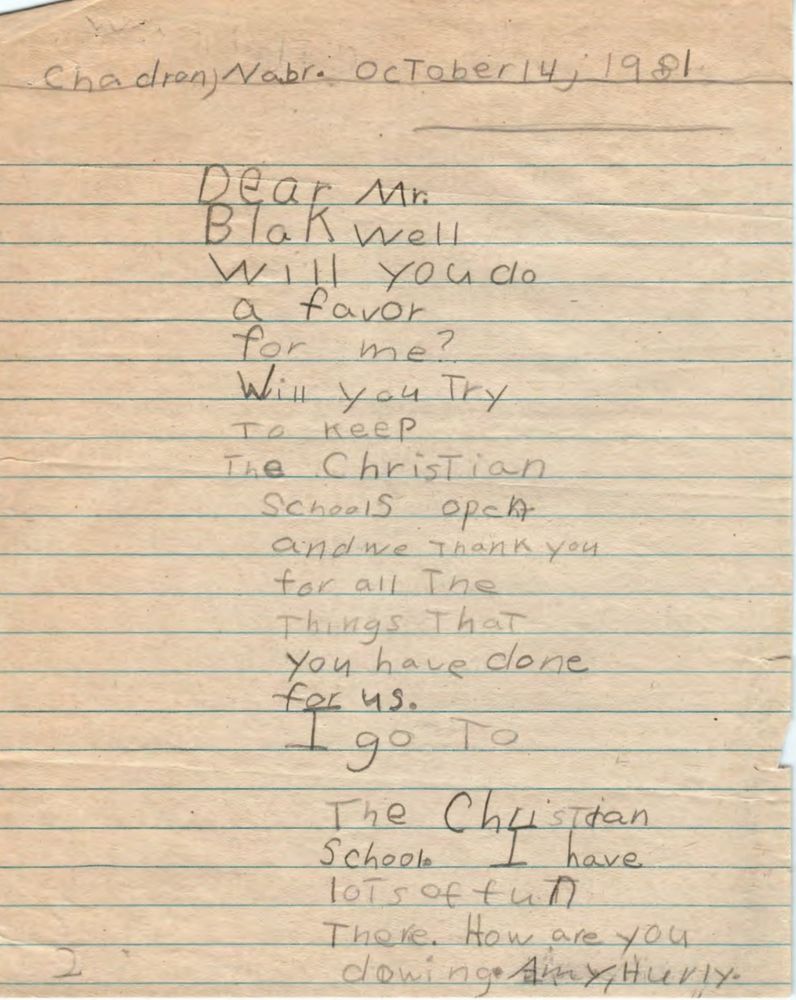 Chadron, Nabr. October 14, 1981
Dear Mr.
Blakwell
Will you do
a favor
for me?
Will you Try
To Keep
The Christian
Schools open
and we Thank you
for all The
Things That
you have done
for us.
I go To
The Christian
School. I have
loTs of fun
There. How are you
dowing. Amy, Hurly.
2